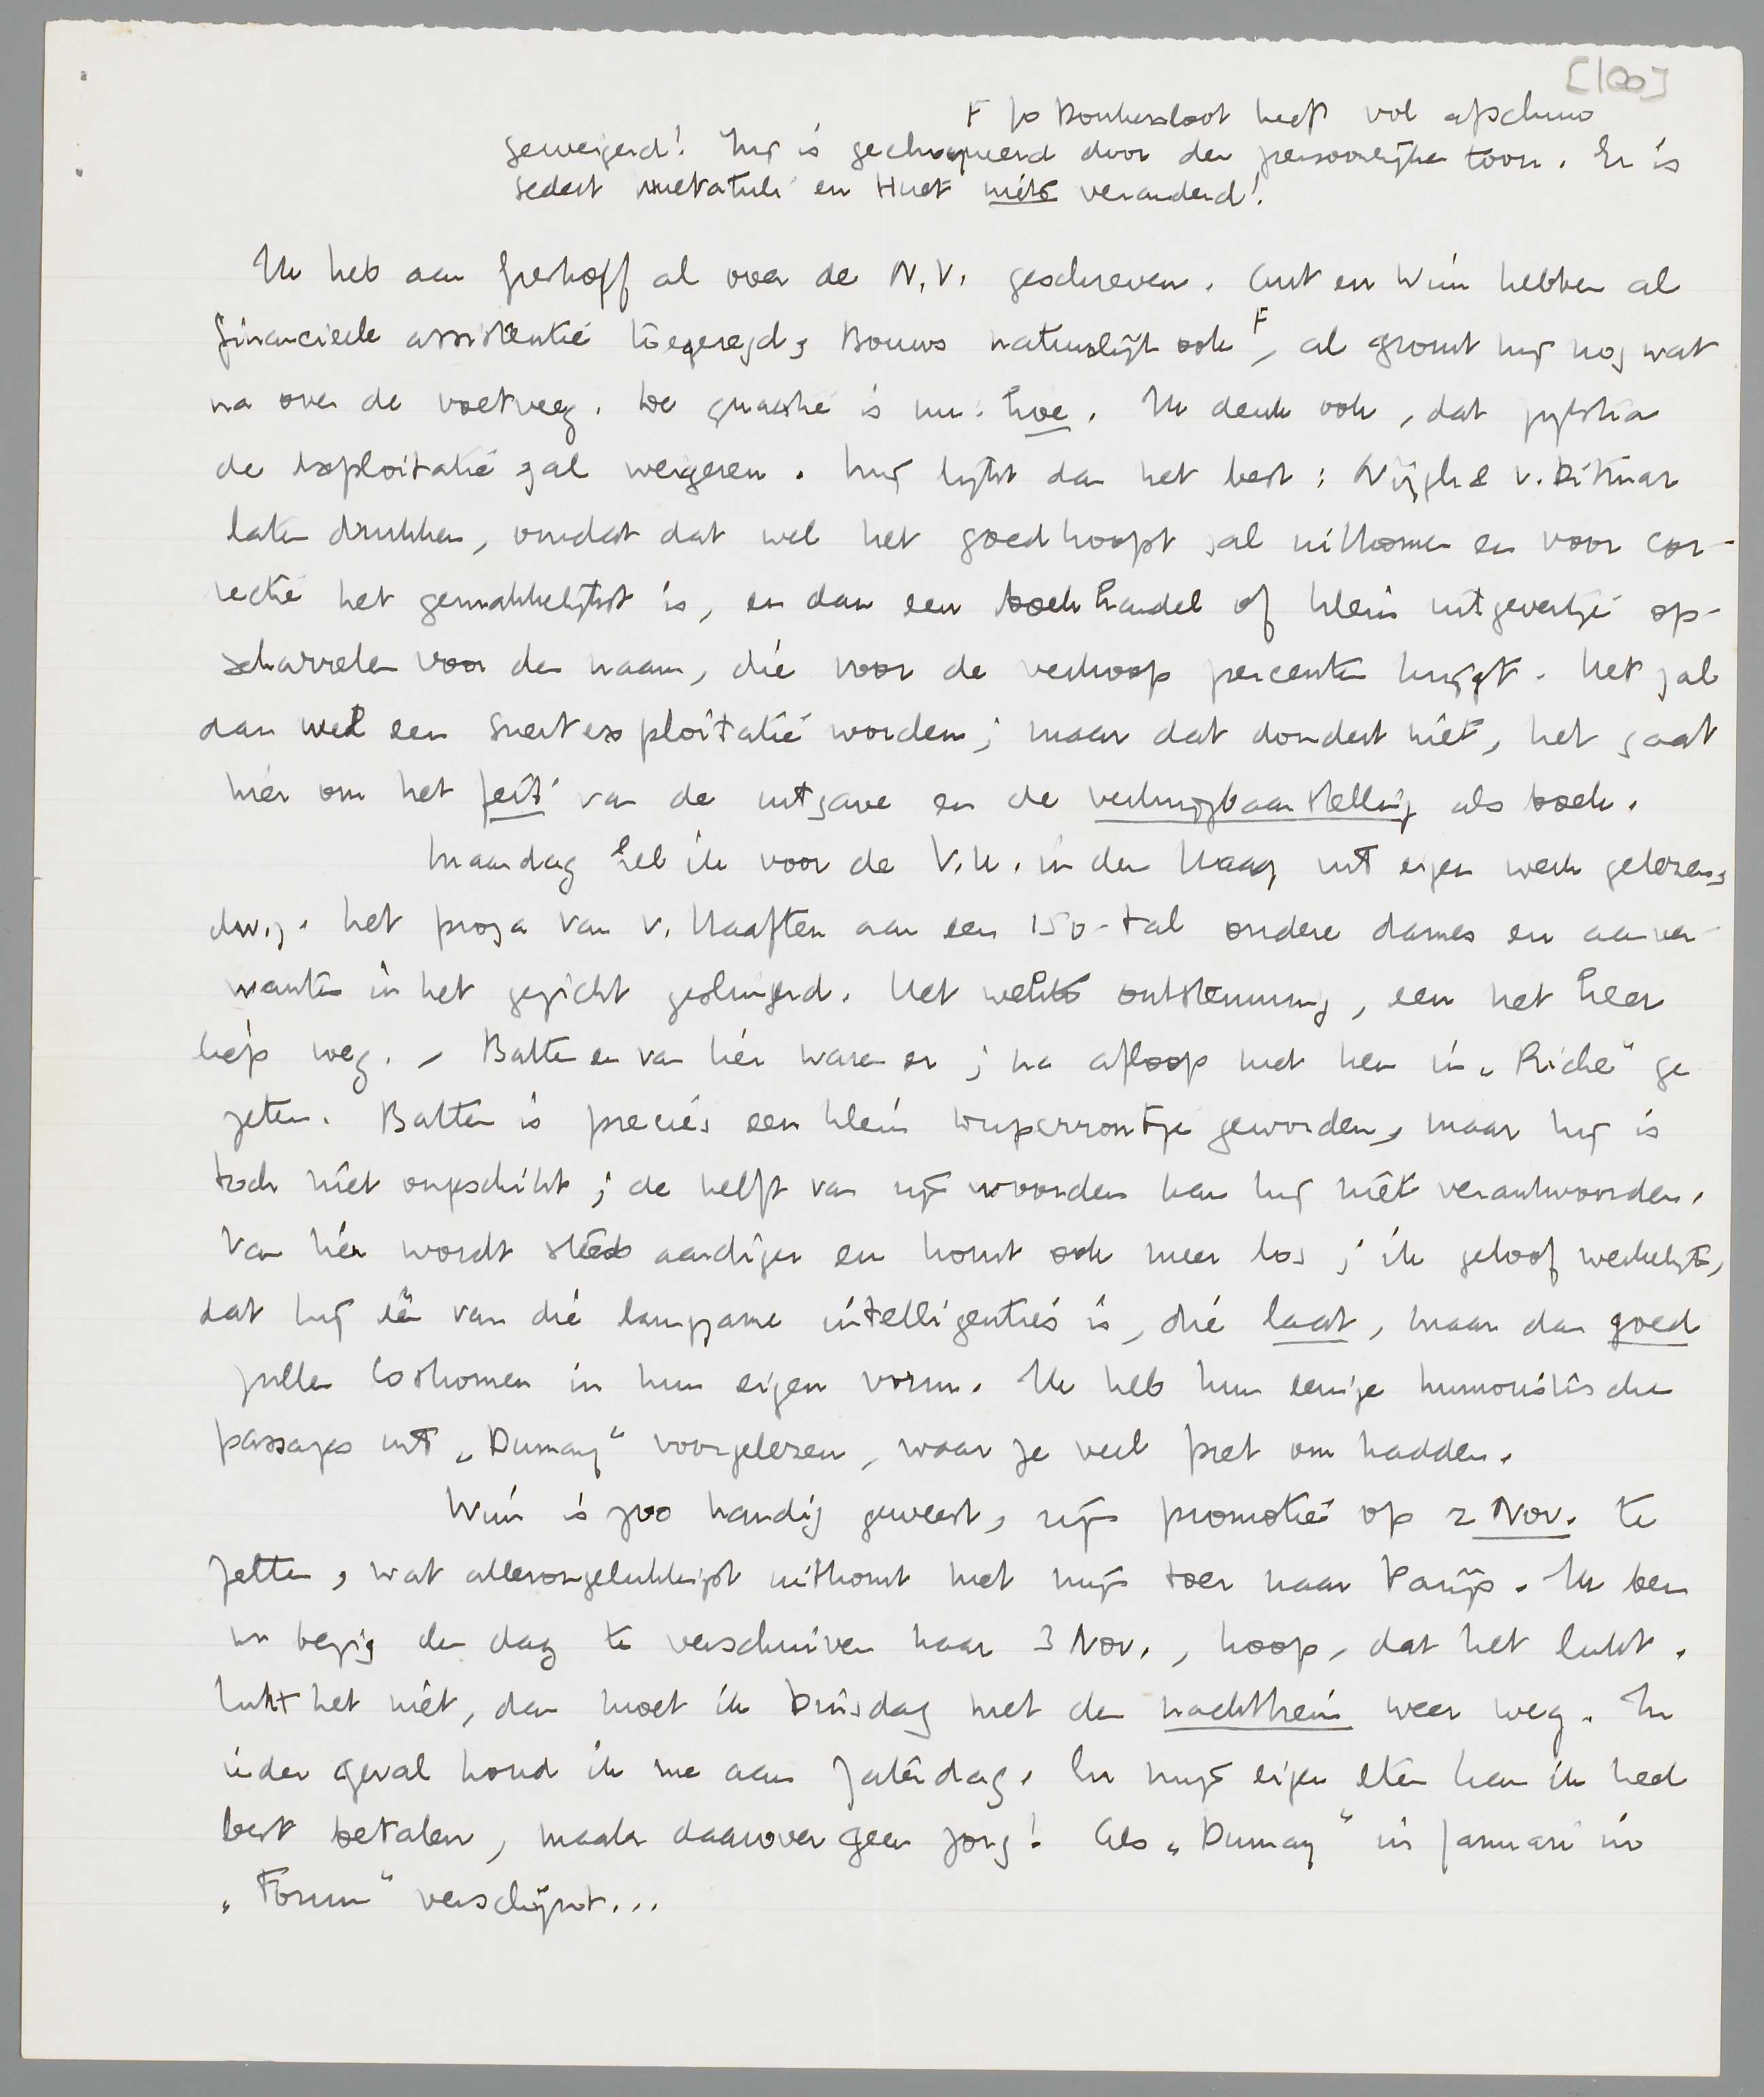 [100]
F Jo Donkersloot heeft vol afschuw
geweigerd! Hij is gechoqueerd door den persoonlijken toon. Er is
sedert Multatuli en Huet niets veranderd!
Ik heb aan Greshoff al over de N.V. geschreven. Ant en Wim hebben al
financieele assistentie toegezegd, Bouws natuurlijk ook F, al gromt hij nog wat
na over de voetveeg. De quaestie is nu: hoe. Ik denk ook, dat Zijlstra
de exploitatie zal weigeren. Mij lijkt dan het best: Nijgh & v. Ditmar
laten drukken, omdat dat wel het goedkoopst zal uitkomen en voor cor-
rectie het gemakkelijkst is, en dan een boekhandel of klein uitgevertje op-
scharrelen voor den naam, die voor de verkoop percenten krijgt. Het zal
dan wel een snertexploitatie worden; maar dat dondert niet, het gaat
hier om het feit van de uitgave en de verkrijgbaarstelling als boek.
Maandag heb ik voor de V.U. in den Haag uit eigen werk gelezen,
d.w.z. het proza van v. Haaften aan een 150-tal oudere dames en aanver-
wanten in het gezicht geslingerd. Het wekte ontstemming, een het heer
liep weg. – Batten en van Lier waren er; na afloop met hen in „Riche" ge-
zeten. Batten is precies een klein Duperrontje geworden, maar hij is
toch niet ongeschikt; de helft van zijn woorden kan hij niet verantwoorden.
Van Lier wordt steeds aardiger en komt ook meer los; ik geloof werkelijk,
dat hij één van die langzame intelligenties is, die laat, maar dan goed
zullen loskomen in hun eigen vorm. Ik heb hun eenige humoristische
passages uit „Dumay" voorgelezen, waar ze veel pret om hadden.
Wim is zoo handig geweest, zijn promotie op 2 Nov. te
zetten, wat allerongelukkigst uitkomt met mijn toer naar Parijs. Ik ben
nu bezig den dag te verschuiven naar 3 Nov., hoop, dat het lukt.
Lukt het niet, dan moet ik Dinsdag met den nachttrein weer weg. In
ieder geval houd ik me aan Zaterdag. En mijn eigen eten kan ik heel
best betalen, maak daarover geen zorg! Als „Dumay" in Januari in
„Forum" verschijnt...